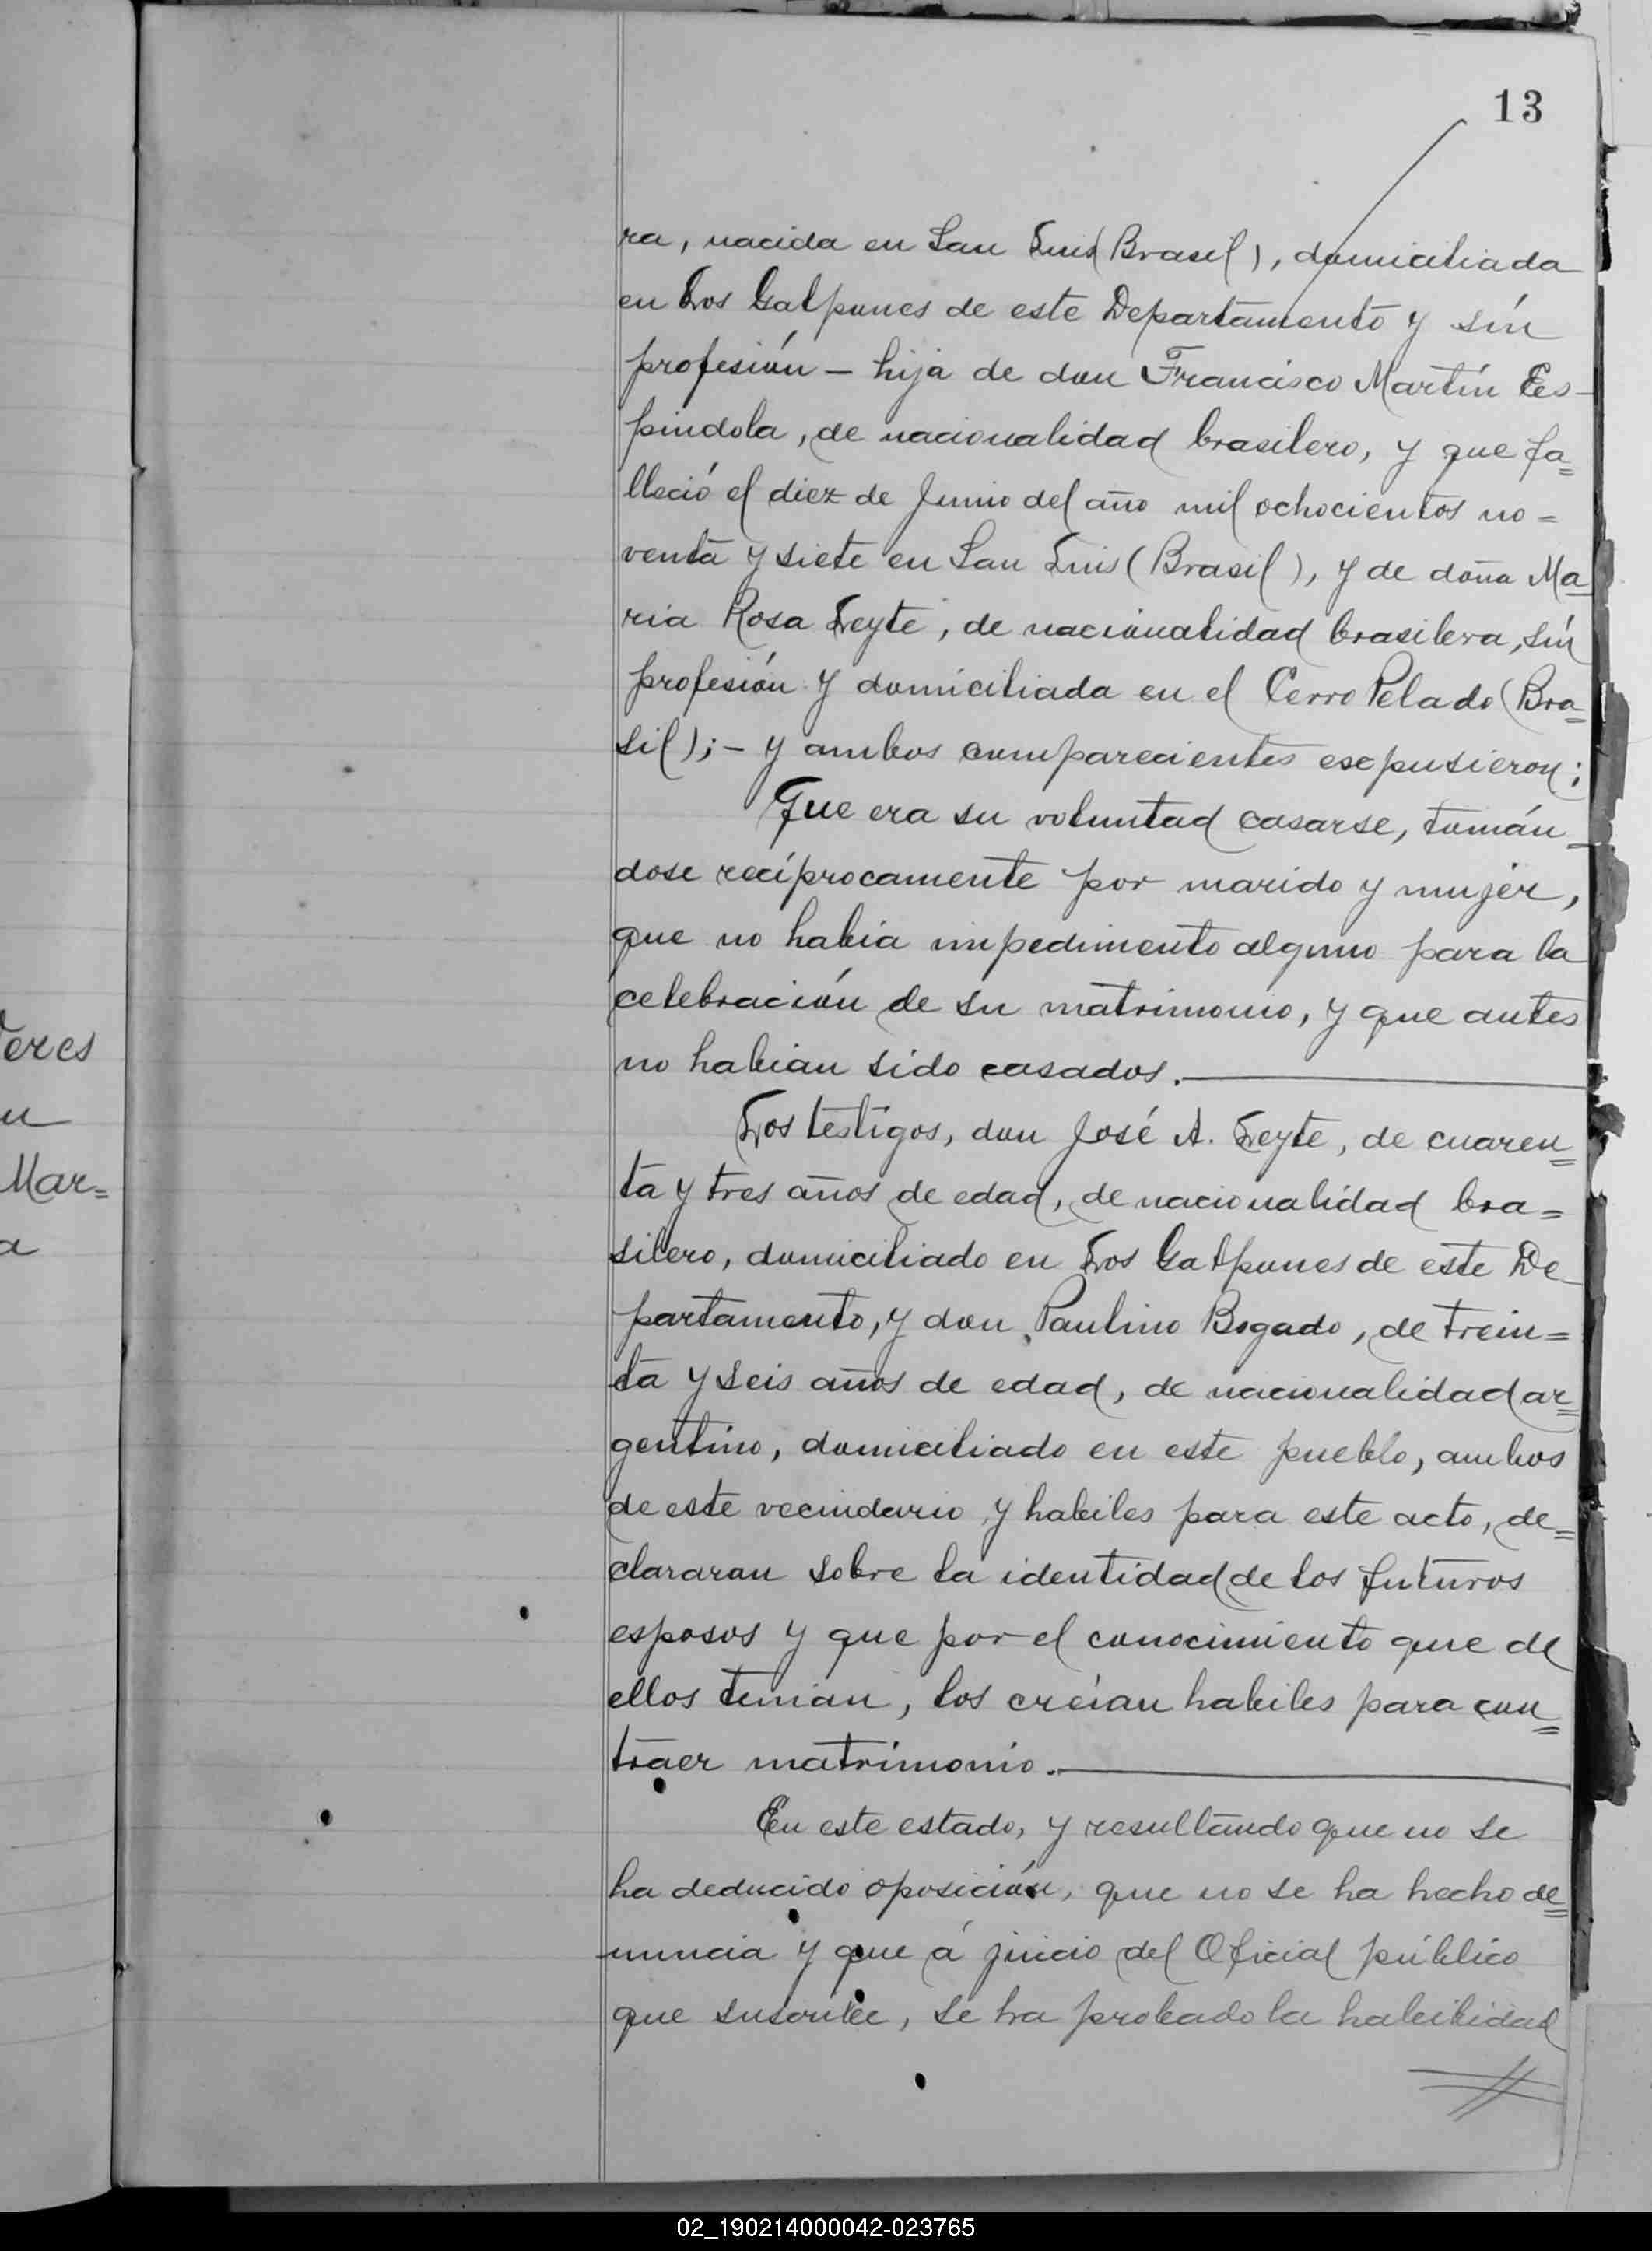 13
ra, nacida en San Luis (Brasil), domiciliada
en Los Galpones de este Departamento y sín
profesión – hija de don Francisco Martín Es-
píndola, de nacionalidad brasilero, y que fa=
lleció el diez de Junio del año mil ochocientos no=
venta y siete en San Luis (Brasil), y de doña Ma=
ria Rosa Leyte, de nacionalidad brasilera, sín
profesión y domiciliada en el Cerro Pelado (Bra=
sil); – y ambos comparecientes expusieron:
Que era su voluntad casarse, tomán-
dose recíprocamente por marido y mujer,
que no habia impedimento alguno para la
celebración de su matrimonio, y que antes
no habian sido casados.
Los testigos, don José A. Leyte, de cuaren=
ta y tres años de edad, de nacionalidad bra=
silero, domiciliado en Los Galpones de este De-
partamento, y don Paulino Bogado, de trein=
ta y seis años de edad, de nacionalidad ar=
gentino, domiciliado en este pueblo, ambos
de este vecindario y habiles para este acto, de=
clararan sobre la identidad de los futuros
esposos y que por el conocimiento que de
ellos tenian, los creían habiles para con=
traer matrimonio.
En este estado, y resultando que no se
ha deducido oposición, que no se ha hecho de=
nuncia y que á juicio del Oficial público
que suscribe, se ha probado la habilidad
eres
u
Mar=
a
02_190214000042-023765